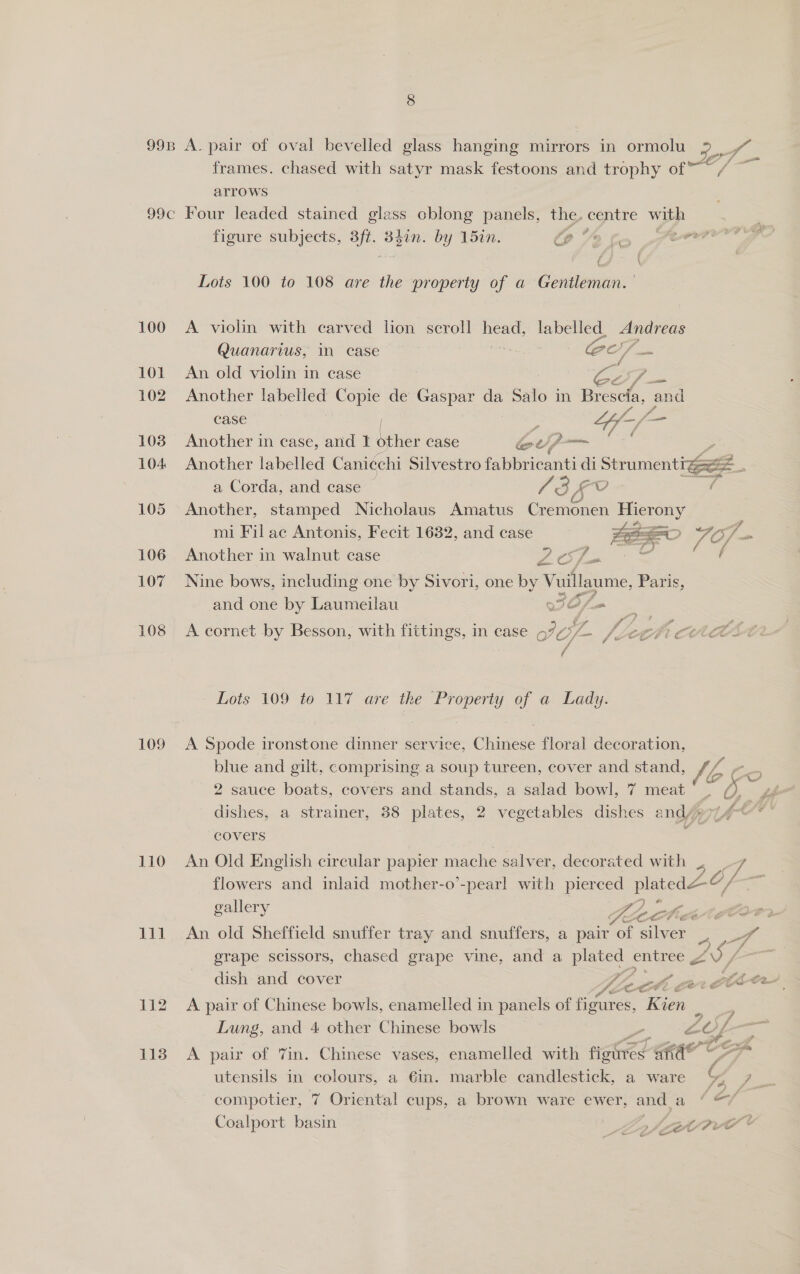 8
99B A. pair of oval bevelled glass hanging mirrors in ormolu
frames. chased with satyr mask festoons and trophy of
arrows
99C Four leaded stained glass oblong panels, the centre with
figure subjects, 3ft. 3½in. by 15in.
Lots 100 to 108 are the property of a Gentleman.
100 A violin with carved lion scroll head, labelled Andreas
Quanarius, in case 60/-
101 An old violin in case
102 Another labelled Copie de Gaspar da Salo in Brescia, and
case
103 Another in case, and 1 other case
104 Another labelled Canicchi Silvestro fabbricanti di Strumenti
a Corda, and case
105 Another, stamped Nicholaus Amatus Cremonen Hierony
mi Fil ac Antonis, Fecit 1632, and case 70/-
106 Another in walnut case
107 Nine bows, including one by Sivori, one by Vuillaume, Paris,
and one by Laumeilau 30/-
108 A cornet by Besson, with fittings, in case 30/-
Lots 109 to 117 are the Property of a Lady.
109 A Spode ironstone dinner service, Chinese floral decoration,
blue and gilt, comprising a soup tureen, cover and stand,
2 sauce boats, covers and stands, a salad bowl, 7 meat
dishes, a strainer, 38 plates, 2 vegetables dishes and
covers
110 An Old English circular papier mache salver, decorated with
flowers and inlaid mother-o'-pearl with pierced plated
gallery
111 An old Sheffield snuffer tray and snuffers, a pair of silver
grape scissors, chased grape vine, and a plated entree
dish and cover
112 A pair of Chinese bowls, enamelled in panels of figures, Kien
Lung, and 4 other Chinese bowls
113 A pair of 7in. Chinese vases, enamelled with figures and
utensils in colours, a 6in. marble candlestick, a ware
compotier, 7 Oriental cups, a brown ware ewer, and a
Coalport basin